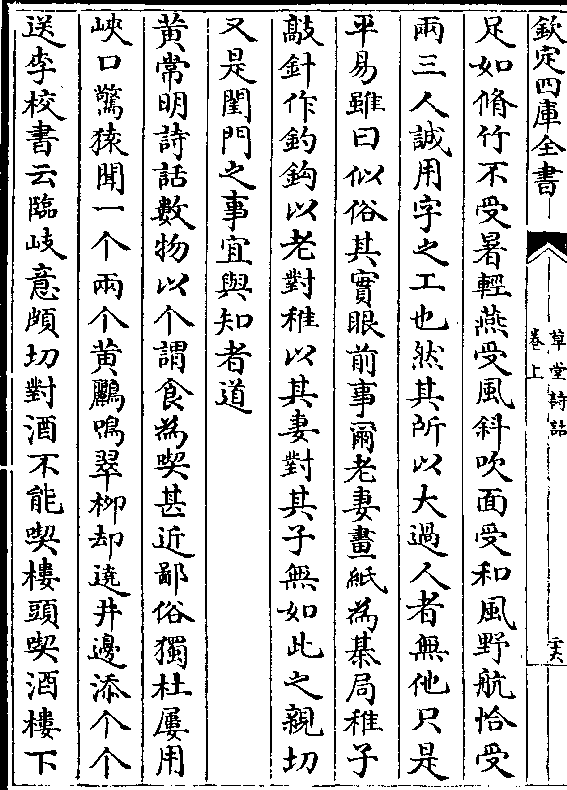 欽定四庫全書
草堂詩話
卷上
足如脩竹不受暑輕燕受風斜吹面受和風野航恰受
兩三人誠用字之工也然其所以大過人者無他只是
平易雖曰似俗其實眼前事爾老妻畫紙為棊局稚子
敲針作釣鈎以老對稚以其妻對其子無如此之親切
又是閨門之事宜與知者道
黄常明詩話數物以个謂食為喫甚近鄙俗獨杜屢用
峽口驚猿聞一个兩个黄鸝鳴翠柳却遶井邊添个个
送李校書云臨岐意頗切對酒不能喫樓頭喫酒樓下